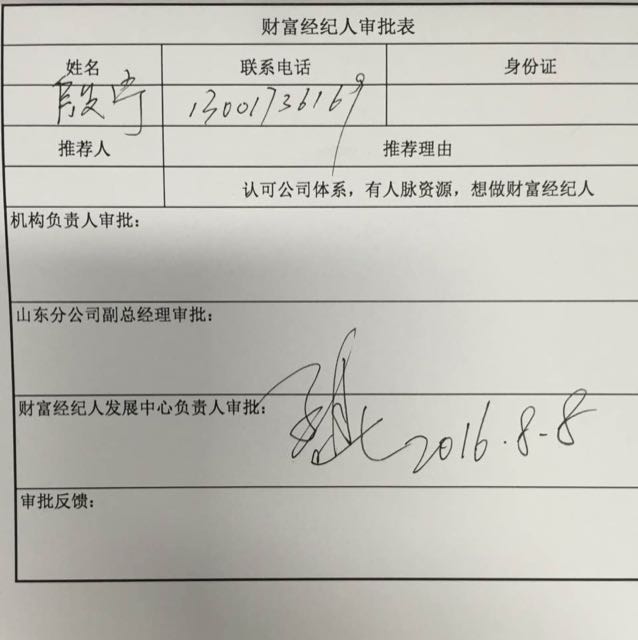 财富经纪人审批表
姓名 联系电话 身份证
13001736169
推荐人 推荐理由
认可公司体系，有人脉资源，想做财富经纪人
机构负责人审批：
山东分公司副总经理审批：
财富经纪人发展中心负责人审批：
2016.8-8
审批反馈：